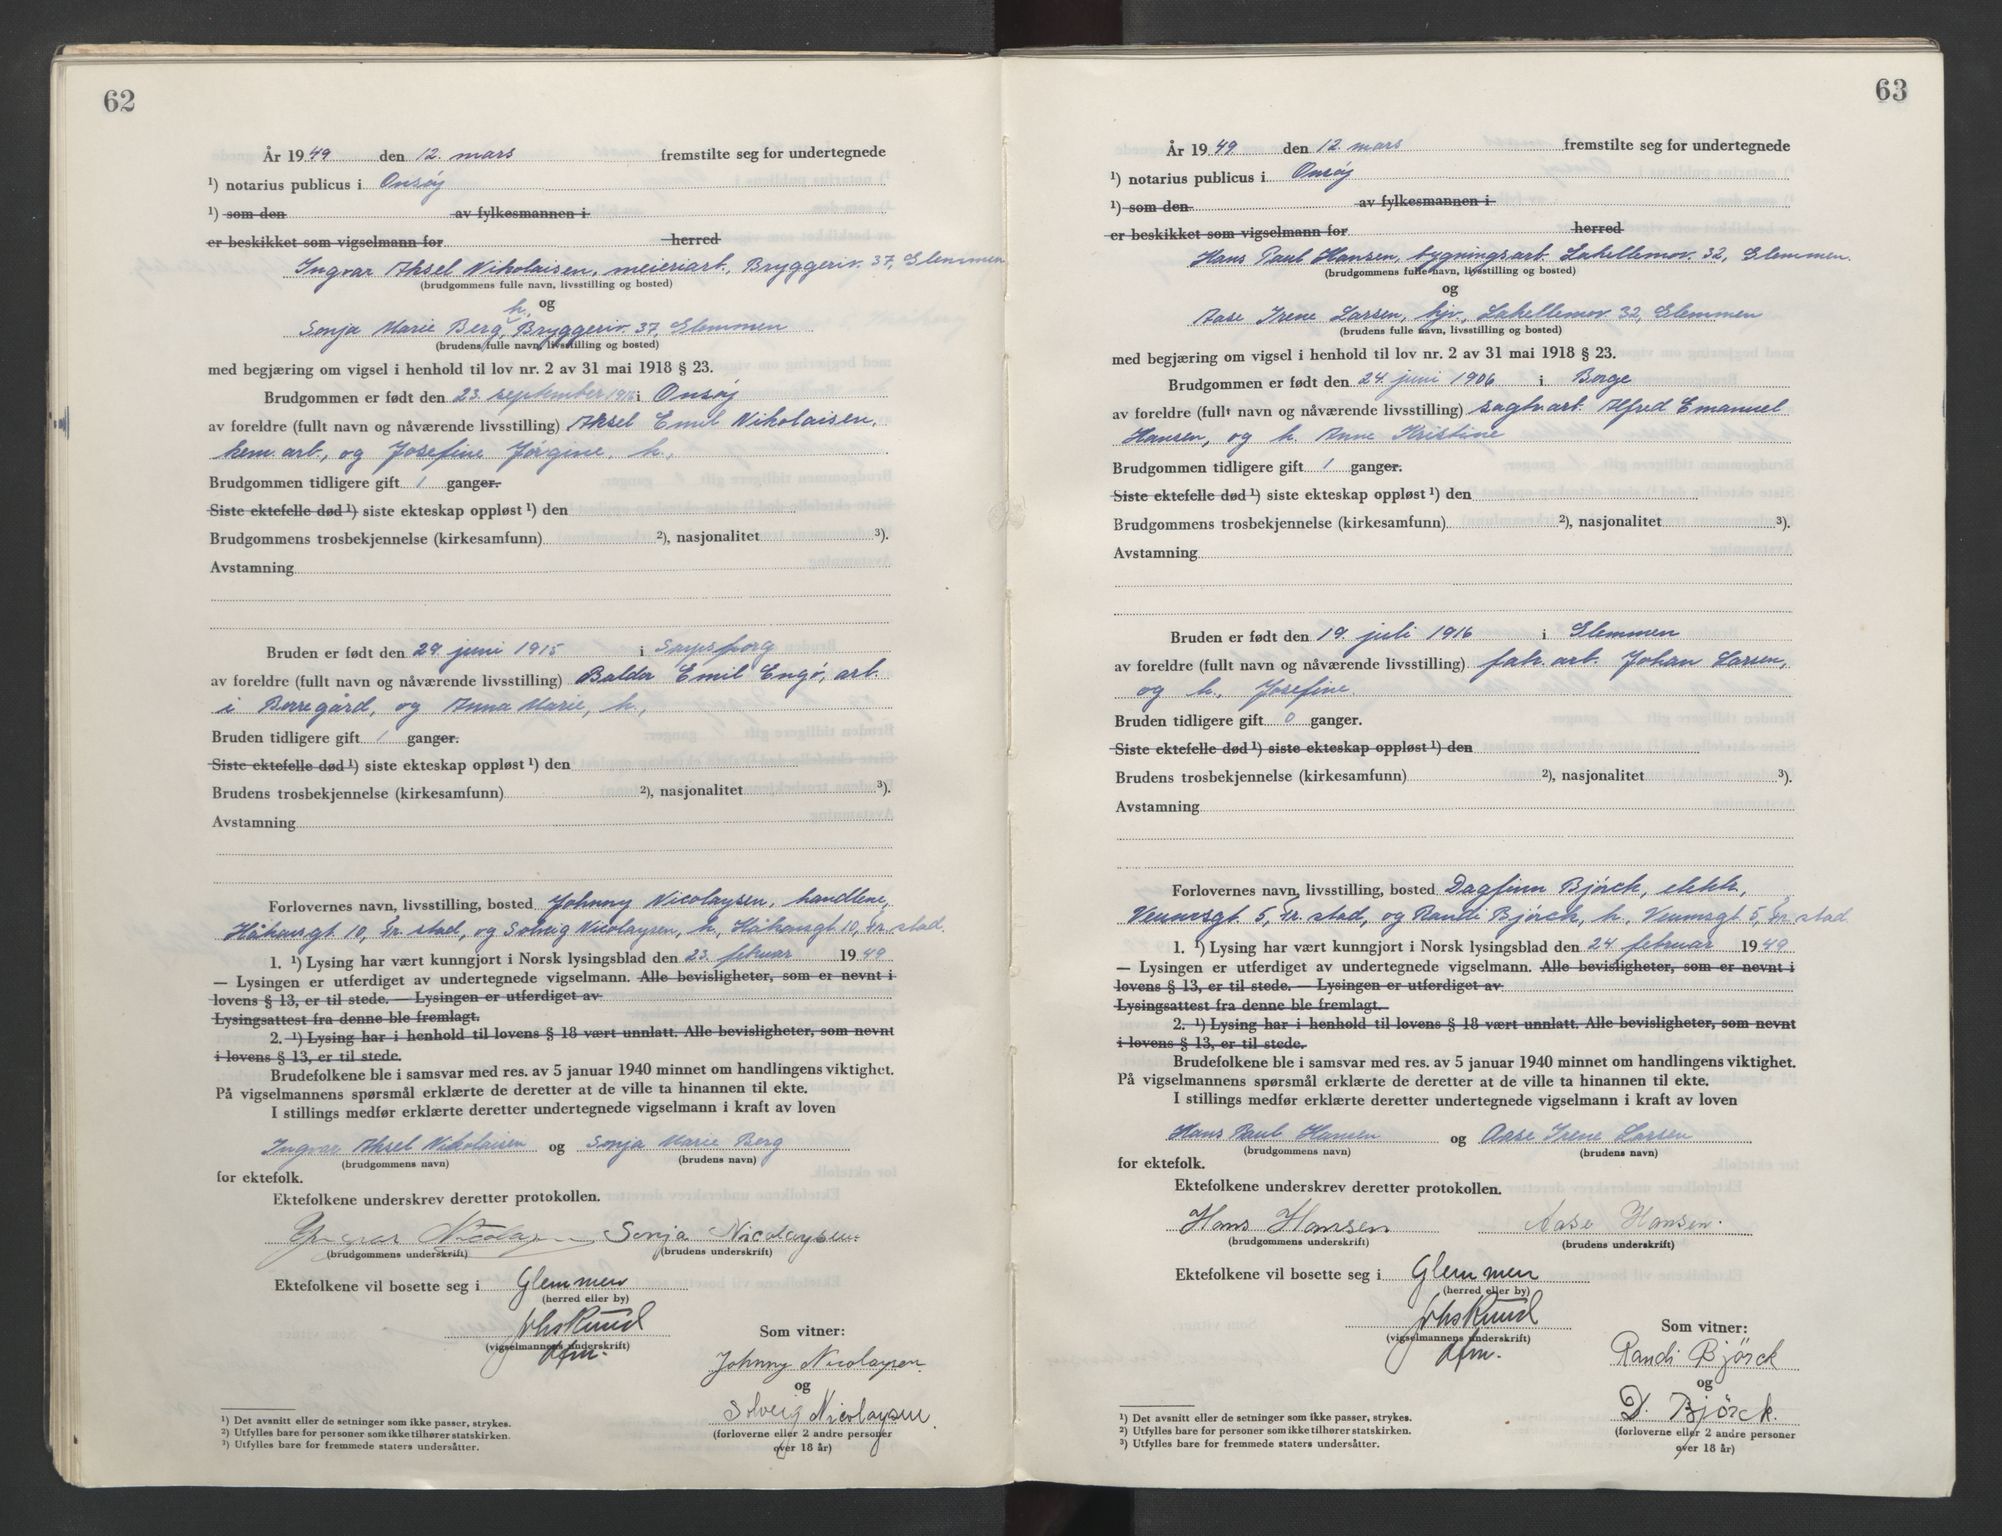 62
År 1949 den 12. mars fremstilte seg for undertegnede
¹) notarius publicus i Onsøy
¹) som den av fylkesmannen i
er beskikket som vigselmann for herred
Ingvar Aksel Nikolaisen, meieriarb., Bryggeriv. 37, Glemmen
(brudgommens fulle navn, livsstilling og bosted)
h. og
Sonja Marie Berg, Bryggeriv. 37, Glemmen
(brudens fulle navn, livsstilling og bosted)
med begjæring om vigsel i henhold til lov nr. 2 av 31 mai 1918 § 23.
Brudgommen er født den 23. september i Onsøy
av foreldre (fullt navn og nåværende livsstilling) Aksel Emil Nikolaisen,
kem. arb., og Josefine Jørgine, h.,
Brudgommen tidligere gift 1 ganger.
Siste ektefelle død ¹) siste ekteskap oppløst ¹) den
Brudgommens trosbekjennelse (kirkesamfunn) ²), nasjonalitet ³).
Avstamning
Bruden er født den 29 juni 1915 i Sarpsborg
av foreldre (fullt navn og nåværende livsstilling) Balder Emil Engø, arb.
i Borregård, og Anna Marie, h.,
Bruden tidligere gift 1 ganger.
Siste ektefelle død ¹) siste ekteskap oppløst ¹) den
Brudens trosbekjennelse (kirkesamfunn) ²), nasjonalitet ³).
Avstamning
Forlovernes navn, livsstilling, bosted Johnny Nicolaysen, handlene,
Håkonsgt 10, Fr. stad, og Solveig Nicolaysen, h., Håkonsgt. 10, Fr. stad.
1. ¹) Lysing har vært kunngjort i Norsk lysingsblad den 23. februar 1949
— Lysingen er utferdiget av undertegnede vigselmann. Alle bevisligheter, som er nevnt i
lovens § 13, er til stede. — Lysingen er utferdiget av
Lysingsattest fra denne ble fremlagt.
2. ¹) Lysing har i henhold til lovens § 18 vært unnlatt. Alle bevisligheter, som nevnt
i lovens § 13, er til stede.
Brudefolkene ble i samsvar med res. av 5 januar 1940 minnet om handlingens viktighet.
På vigselmannens spørsmål erklærte de deretter at de ville ta hinannen til ekte.
I stillings medfør erklærte deretter undertegnede vigselmann i kraft av loven
Ingvar Aksel Nikolaisen og Sonja Marie Berg
(brudgommens navn) (brudens navn)
for ektefolk.
Ektefolkene underskrev deretter protokollen.
Yngvar Nicolaysen Sonja Nicolaysen
(brudgommens underskrift) (brudens underskrift)
Ektefolkene vil bosette seg i Glemmen
(herred eller by)
Johs Ruud Som vitner:
(vigselmannens underskrift)
dfm.
Johnny Nicolaysen
og
Solveig Nicolaysen.
(forloverne eller 2 andre personer
over 18 år)
¹) Det avsnitt eller de setninger som ikke passer, strykes.
²) Utfylles bare for personer som ikke tilhører statskirken.
³) Utfylles bare for fremmede staters undersåtter.
63
År 1949 den 12. mars fremstilte seg for undertegnede
¹) notarius publicus i Onsøy
¹) som den av fylkesmannen i
er beskikket som vigselmann for herred
Hans Paul Hansen, bygningsarb. Lahellemov. 32, Glemmen.
(brudgommens fulle navn, livsstilling og bosted)
og
Aase Irene Larsen, hjv., Lahellemov 32, Glemmen
(brudens fulle navn, livsstilling og bosted)
med begjæring om vigsel i henhold til lov nr. 2 av 31 mai 1918 § 23.
Brudgommen er født den 24. juni 1906 i Borge
av foreldre (fullt navn og nåværende livsstilling) sagbr.arb. Alfred Emanuel
Hansen, og h. Anne Kristine
Brudgommen tidligere gift 1 ganger.
Siste ektefelle død ¹) siste ekteskap oppløst ¹) den
Brudgommens trosbekjennelse (kirkesamfunn) ²), nasjonalitet ³).
Avstamning
Bruden er født den 19. juli 1916 i Glemmen
av foreldre (fullt navn og nåværende livsstilling) fab. arb. Johan Larsen,
og h., Josefine
Bruden tidligere gift 0 ganger.
Siste ektefelle død ¹) siste ekteskap oppløst ¹) den
Brudens trosbekjennelse (kirkesamfunn) ²), nasjonalitet ³).
Avstamning
Forlovernes navn, livsstilling, bosted Dagfinn Bjørck, elektr.,
Veumsgt. 5, Fr. stad, og Randi Bjørck, h., Veumsgt 5, Fr. stad
1. ¹) Lysing har vært kunngjort i Norsk lysingsblad den 24 februar 1949
— Lysingen er utferdiget av undertegnede vigselmann. Alle bevisligheter, som er nevnt i
lovens § 13, er til stede. — Lysingen er utferdiget av
Lysingsattest fra denne ble fremlagt.
2. ¹) Lysing har i henhold til lovens § 18 vært unnlatt. Alle bevisligheter, som nevnt
i lovens § 13, er til stede.
Brudefolkene ble i samsvar med res. av 5 januar 1940 minnet om handlingens viktighet.
På vigselmannens spørsmål erklærte de deretter at de ville ta hinannen til ekte.
I stillings medfør erklærte deretter undertegnede vigselmann i kraft av loven
Hans Paul Hansen og Aase Irene Larsen
(brudgommens navn) (brudens navn)
for ektefolk.
Ektefolkene underskrev deretter protokollen.
Hans Hansen Aase Hansen.
(brudgommens underskrift) (brudens underskrift)
Ektefolkene vil bosette seg i Glemmen
(herred eller by)
Johs Ruud Som vitner:
(vigselmannens underskrift)
dfm.
Randi Bjørck
og
D. Bjørck.
(forloverne eller 2 andre personer
over 18 år)
¹) Det avsnitt eller de setninger som ikke passer, strykes.
²) Utfylles bare for personer som ikke tilhører statskirken.
³) Utfylles bare for fremmede staters undersåtter.